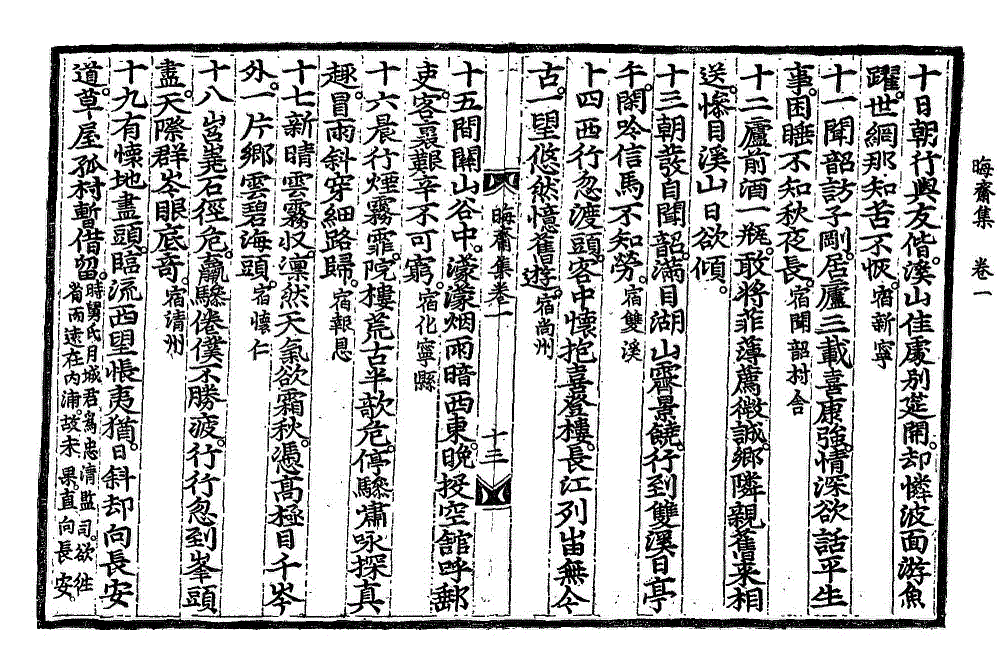 晦齋集　卷一
十日朝行與友偕。溪山佳處別筵開。却憐波面游魚
躍。世網那知苦不恢。宿新寧
十一聞韶訪子剛。居廬三載喜康強。情深欲話平生
事。困睡不知秋夜長。宿聞韶村舍
十二廬前酒一瓶。敢將菲薄薦微誠。鄕隣親舊來相
送。慘目溪山日欲傾。
十三朝發自聞韶。滿目湖山霽景饒。行到雙溪日亭
午。閑吟信馬不知勞。宿雙溪
十四西行忽渡頭。客中懷抱喜登樓。長江列岫無今
古。一望悠然憶舊遊。宿尙州
晦齋集卷一　十三
十五間關山谷中。濛濛烟雨暗西東。晩投空舘呼郵
吏。客裏艱辛不可窮。宿化寧縣
十六晨行煙霧霏。院樓荒古半欹危。停驂嘯咏探眞
趣。冒雨斜穿細路歸。宿報恩
十七新晴雲霧收。凜然天氣欲霜秋。憑高極目千岑
外。一片鄕雲碧海頭。宿懷仁
十八岧嶤石徑危。羸驂倦僕不勝疲。行行忽到峯頭
盡。天際群岑眼底奇。宿淸州
十九有懷地盡頭。臨流西望悵夷猶。日斜却向長安
道。草屋孤村暫借留。時舅氏月城君爲忠淸監司。欲往
省而遠在內浦。故未果。直向長安